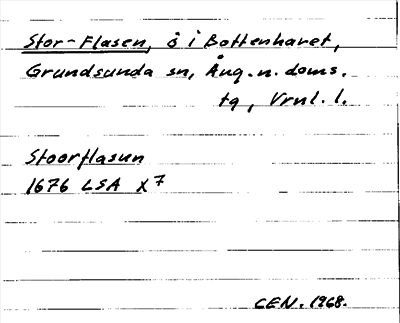 Stor-Flasen, ö i Bottenhavet,
Grundsunda sn, Ång. n. doms.
tg, Vrnl. l.
Stoorflasun
1676 LSA X7
CEN. 1968.